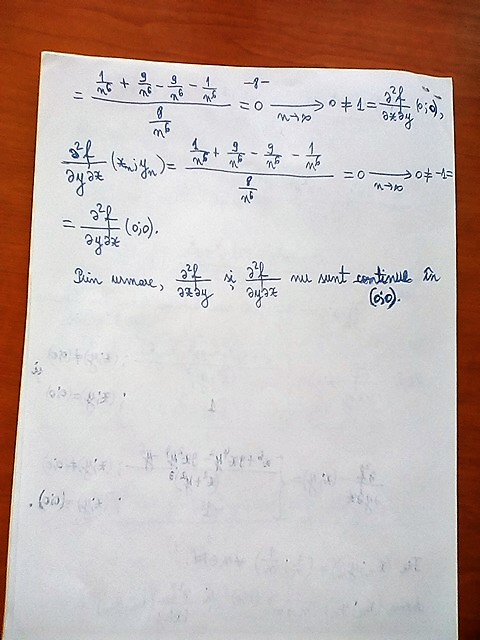 -8-
= (1/n⁶ + 9/n⁶ - 9/n⁶ - 1/n⁶) / (8/n⁶) = 0 ⟶ (n→∞) 0 ≠ 1 = ∂²f/∂x∂y (0;0),
∂²f/∂y∂x (xₙ;yₙ) = (1/n⁶ + 9/n⁶ - 9/n⁶ - 1/n⁶) / (8/n⁶) = 0 ⟶ (n→∞) 0 ≠ -1 =
= ∂²f/∂y∂x (0;0).
Prin urmare, ∂²f/∂x∂y și ∂²f/∂y∂x nu sunt continue în
(0;0).